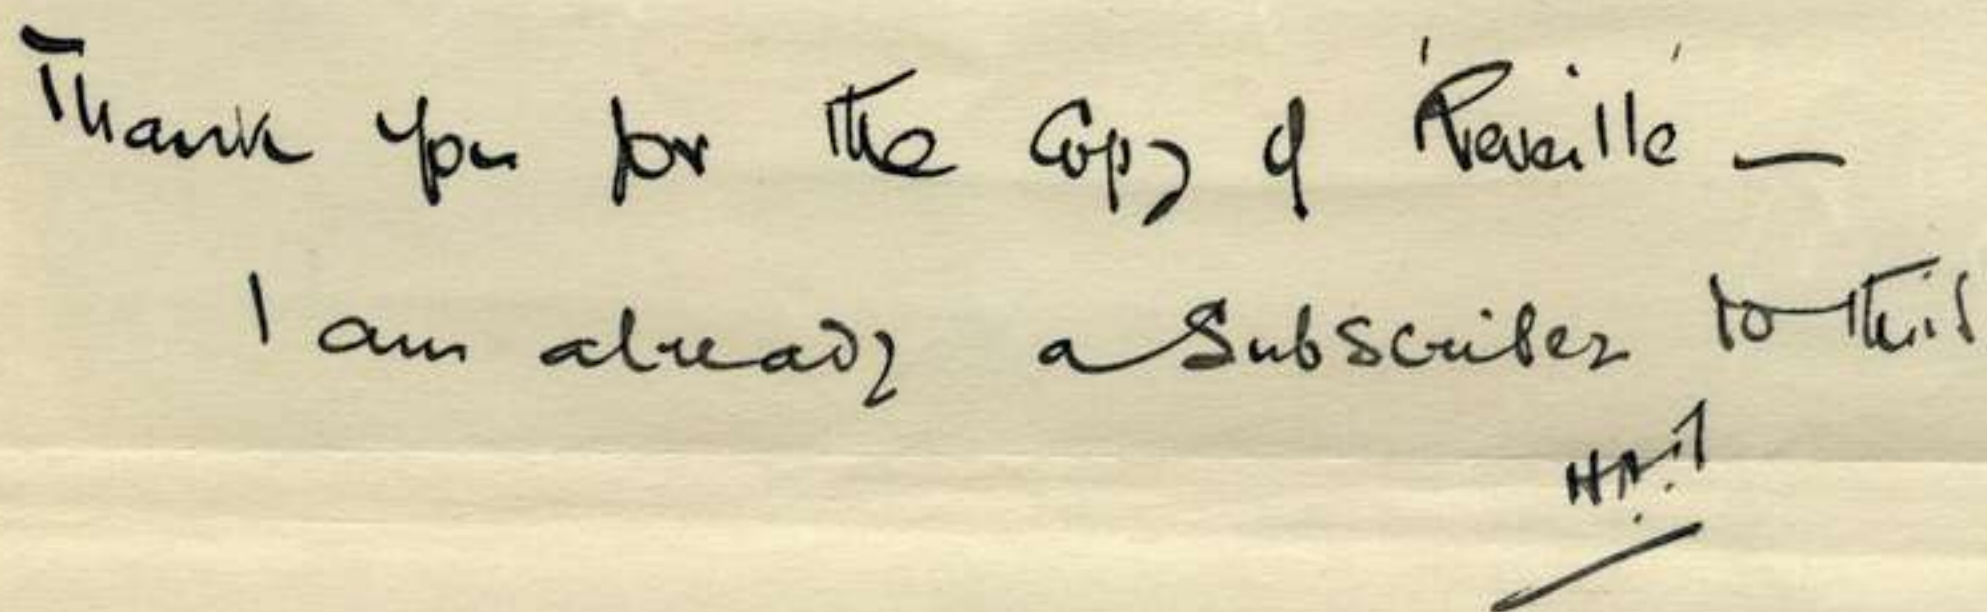 Thank you for the Copy of 'Reveille' —
I am already a Subscriber to this